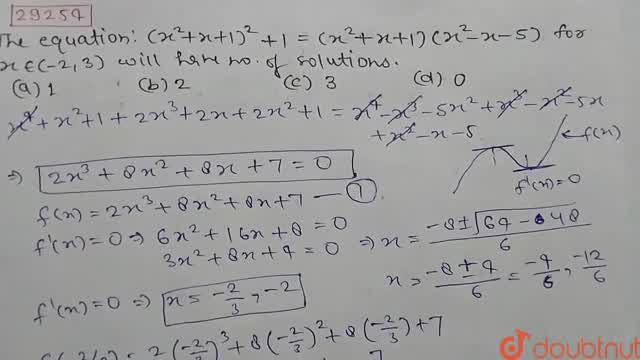 29254
The equation: (x²+x+1)² + 1 = (x²+x+1) (x²-x-5) for
x ∈ (-2, 3) will have no. of solutions.
(a) 1 (b) 2 (c) 3 (d) 0
x⁴ + x² + 1 + 2x³ + 2x + 2x² + 1 = x⁴ - x³ - 5x² + x³ - x² - 5x
+ x² - x - 5
⇒ 2x³ + 8x² + 8x + 7 = 0
f(x)
f'(x) = 0
f(x) = 2x³ + 8x² + 8x + 7 — ①
f'(x) = 0 ⇒ 6x² + 16x + 8 = 0
3x² + 8x + 4 = 0 ⇒ x = -8 ± √64 - 48 / 6
x = -8 ± 4 / 6 = -4/6, -12/6
f'(x) = 0 ⇒ x = -2/3, -2
2(-2/3)³ + 8(-2/3)² + 8(-2/3) + 7
doubtnut